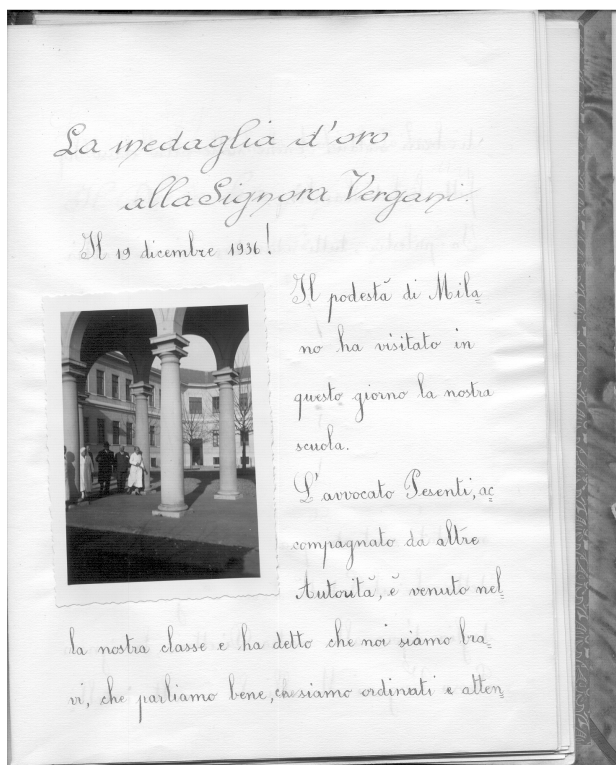 La medaglia d'oro
alla Signora Vergani.
Il 19 dicembre 1936!
Il podestà di Mila=
no ha visitato in
questo giorno la nostra
scuola.
L'avvocato Pesenti, ac=
compagnato da altre
Autorità, è venuto nel=
la nostra classe e ha detto che noi siamo bra=
vi, che parliamo bene, che siamo ordinati e atten=